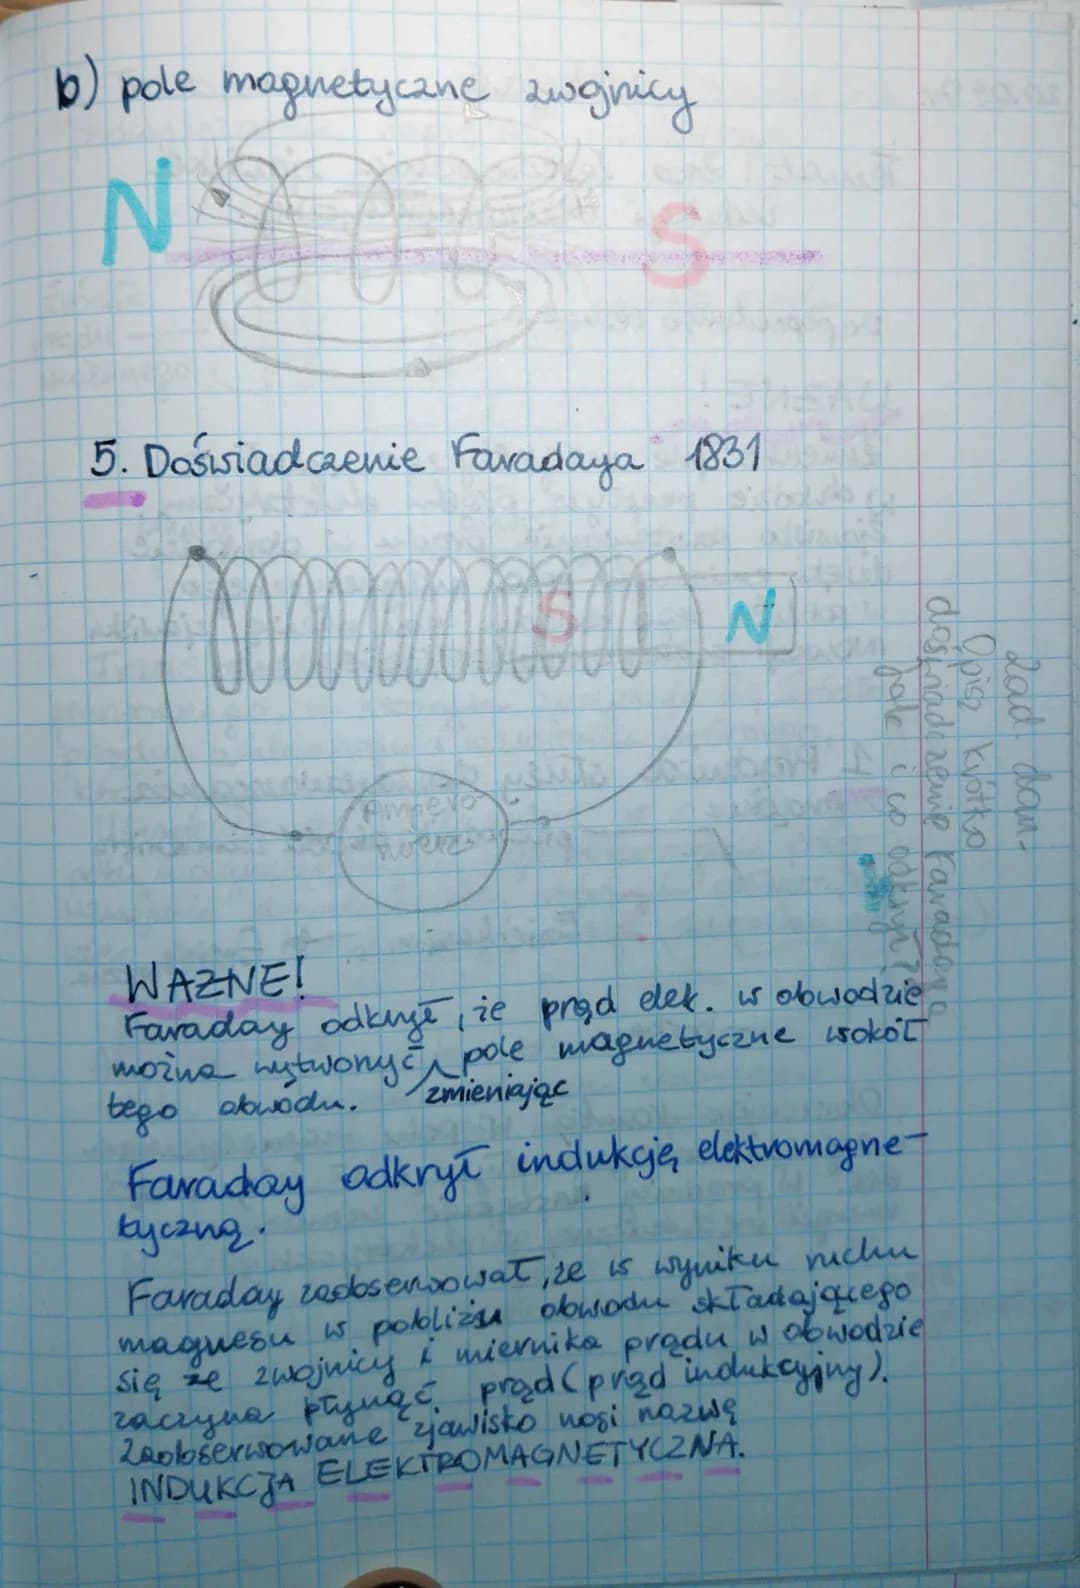 b) pole magnetyczne zwojnicy
N
S
5. Doświadczenie Faradaya 1831
S
N
Zad. dom.
Opisz krótko
doświadczenie Faradaya
jak i co odkrył?
WAŻNE!
Faraday odkrył, że prąd elek. w obwodzie
można wytworzyć pole magnetyczne wokół
zmieniając
tego obwodu.
Faraday odkrył indukcję elektromagne-
tyczną.
Faraday zaobserwował, że w wyniku ruchu
magnesu w pobliżu obwodu składającego
się ze zwojnicy i miernika prądu w obwodzie
zaczyna płynąć prąd (prąd indukcyjny).
Zaobserwowane zjawisko nosi nazwę
INDUKCJA ELEKTROMAGNETYCZNA.